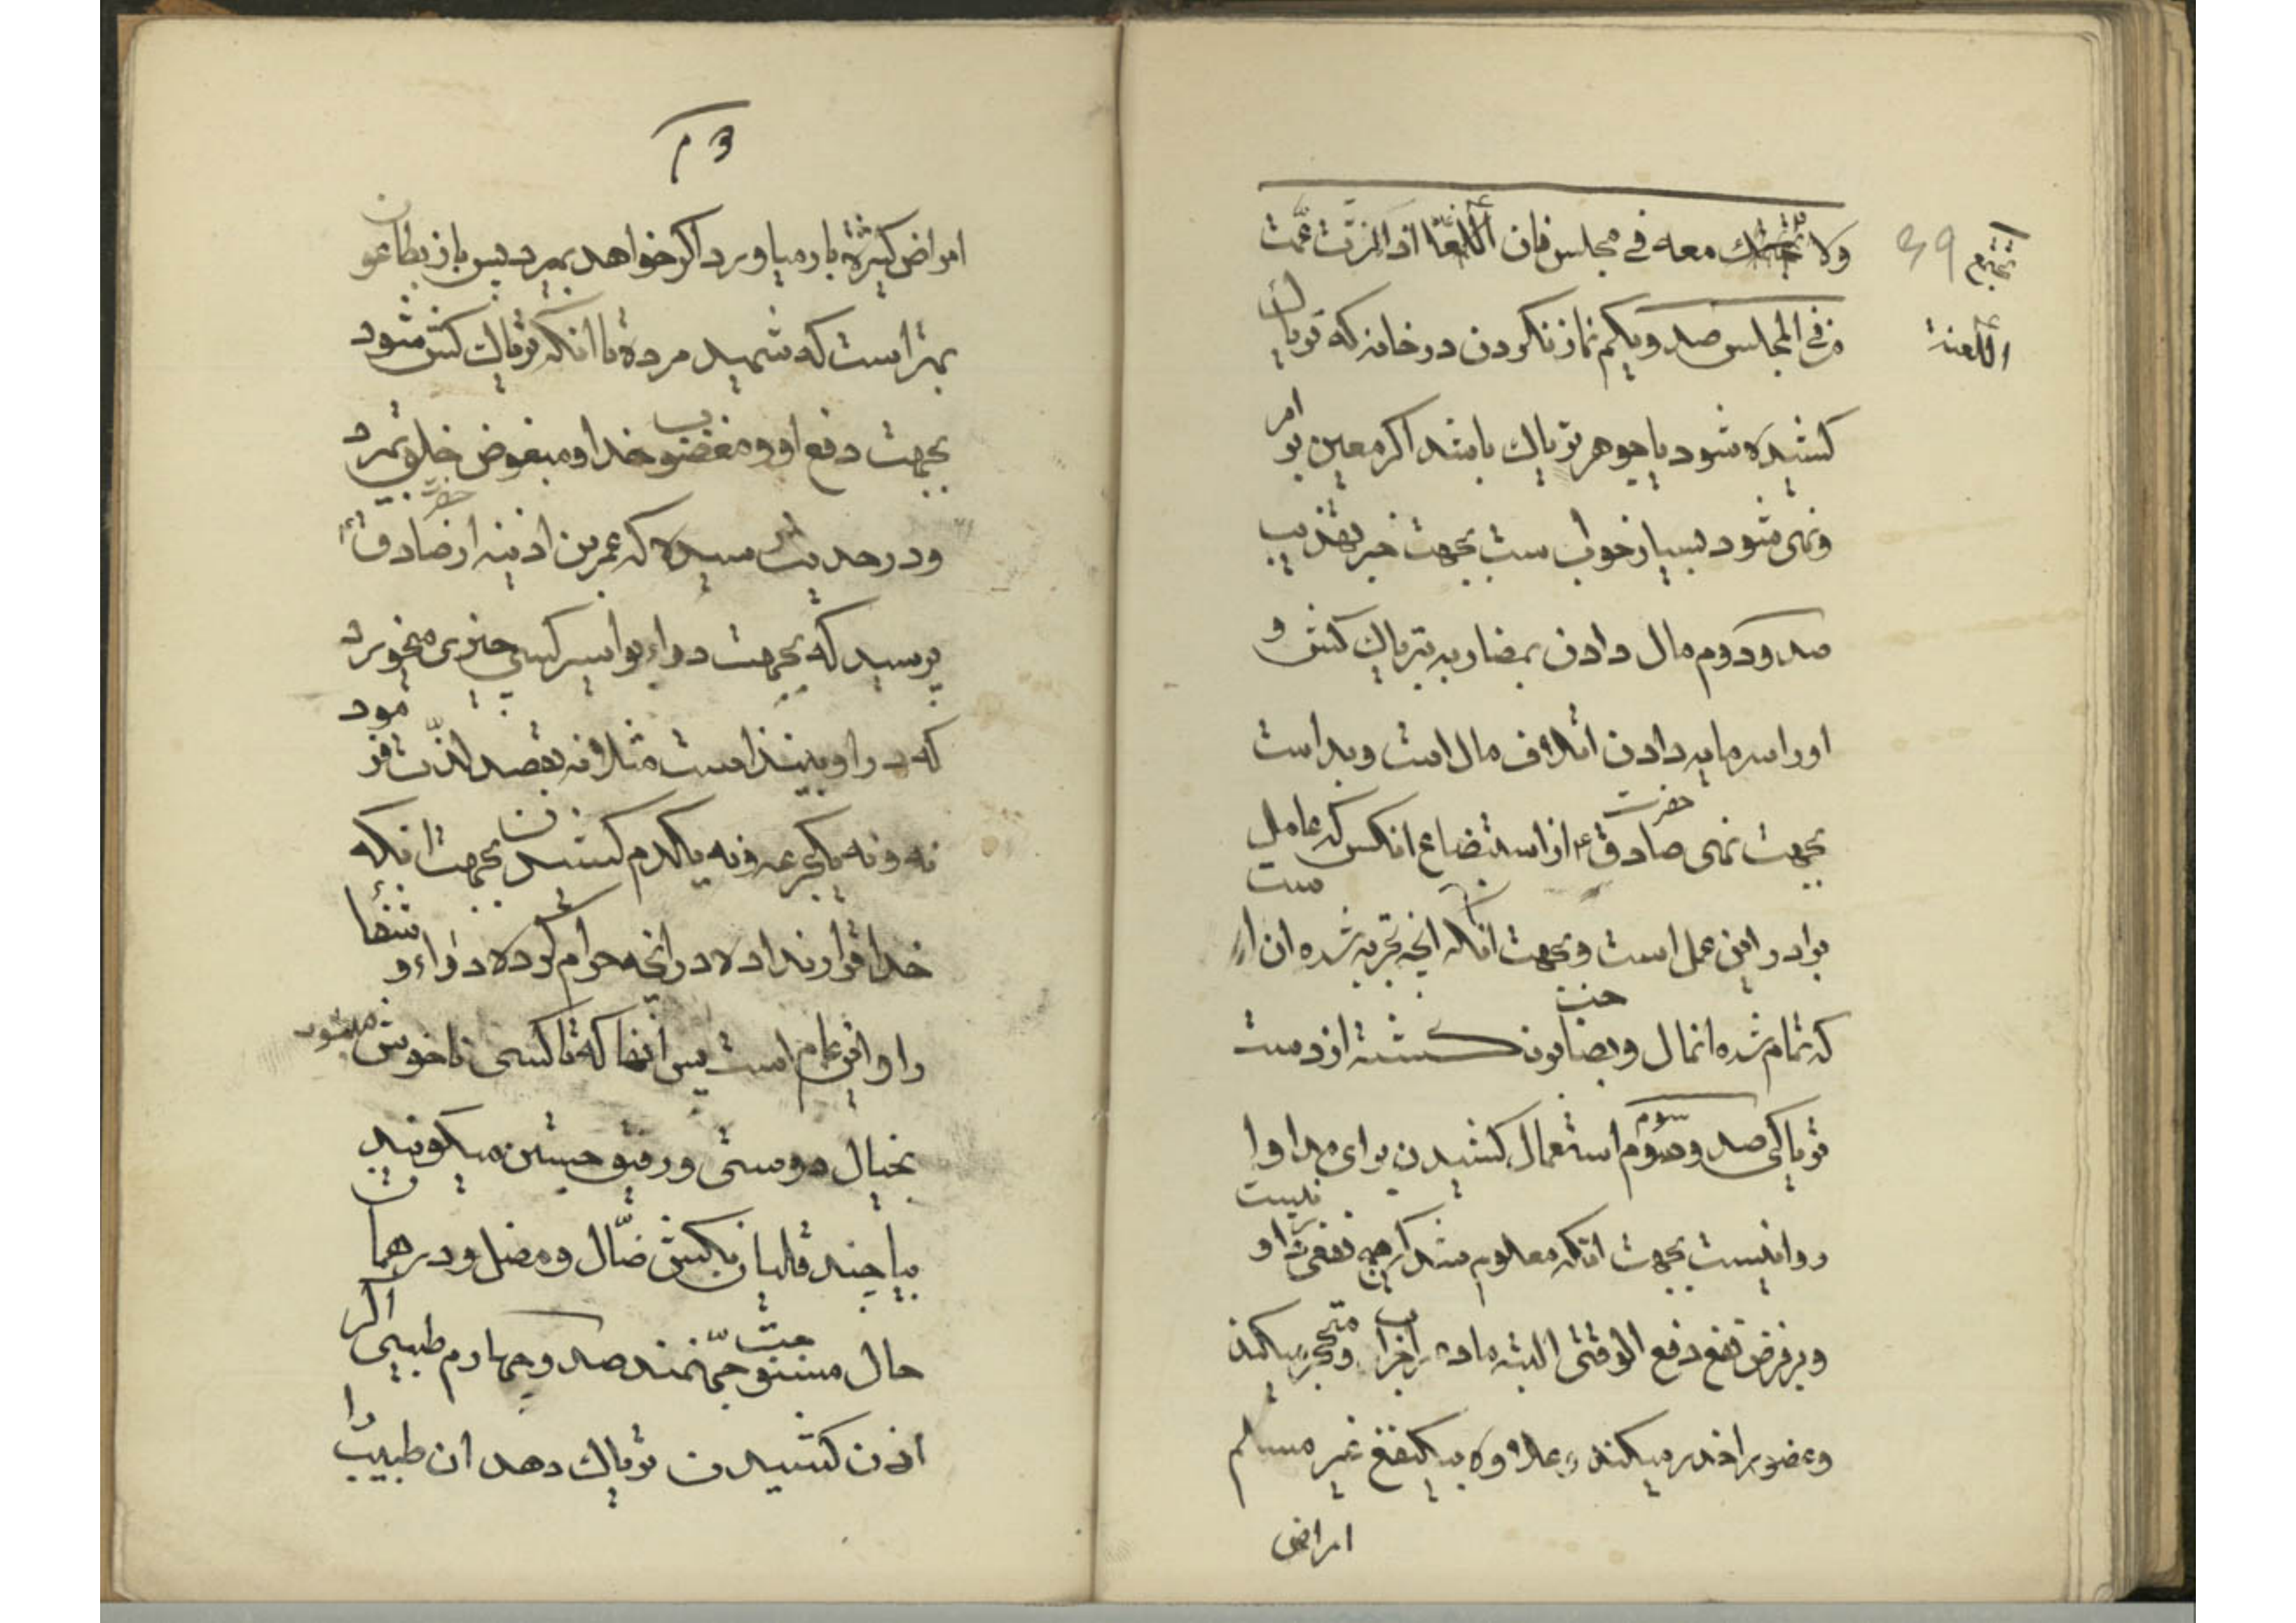 39
تجتمع
اللعنة
ولا تجتمع معه فی مجلس فان اللعنة اذا نزلت عمت
من فی المجلس صد و یکم نماز نکردن در خانه که تریاک
کشیده شود یا جوهر تریاک باشد اگر معین بر امر
و نهی نشود بسیار خوب است بجهت خبر تهذیب
صد و دوم مال دادن بمضاربه بتریاک کش و
او را سرمایه دادن اتلاف مال است و بد است
بجهت نهی حضرت صادق ع از استبضاع انکس که عامل
براد در این عمل است و بجهت انکه انچه تجربه شده ان است
که تمام شده انمال و بضاعت کشته از دست
تریاکی صد و سوم استعمال کشیدن برای مداوا
روا نیست بجهت انکه معلوم شد که هیچ نفعی در او نیست
و بر فرض نفع دفع الوقتی البته ماده را خراب و متحجر میکند
و عضو را خدر میکند و علاوه بیک نفع غیر مسلم
امراض
امراض کثیره بار میاورد اگر خواهد بمیرد پس باز بطاعون
بهتر است که شهید مرده تا انکه تریاک کش شود
بجهت دفع او و مغضوب خدا و مبغوض خلق بمیرد
و در حدیث رسیده که عمر بن اذینه از حضرت صادق ع
پرسید که بجهت دواء بواسیر کسی چیزی میخورد
که در او نبیذ است مثلا نه بقصد لذت فرمود
نه و نه یکجرعه و نه یکدم کشیدن بجهت انکه
خدا قرار نداده در انچه حرام کرده دواء و شفا
را و این عام است پس انها که تا کسی ناخوش میشود
بخیال دوستی و رفیق حیثین میکویند
بیا چند قلیان بکش ضال و مضل و در همان
حال مستوجب جهنمند صد و چهارم طبیبی اگر
اذن کشیدن تریاک دهد ان طبیب را